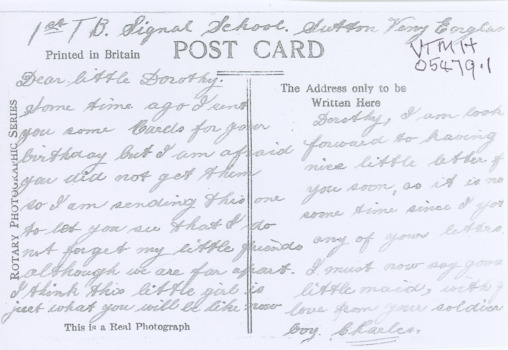 1st T B. Signal School. Sutton Veny Englan
Printed in Britain
POST CARD
VTMH
05479.1
Dear little Dorothy.
Some time ago I sent
you some Cards for your
birthday but I am afraid
you did not get them
so I am sending this one
to let you see that I do
not forget my little friends
although we are far apart.
I think this little girl is
just what you will be like now
ROTARY PHOTOGRAPHIC SERIES
This is a Real Photograph
The Address only to be
Written Here
Dorothy, I am look
forward to having
nice little letter f
you soon, as it is no
some time since I
any of your letters.
I must now say
little maid, with
love from your soldier
boy. Charles.